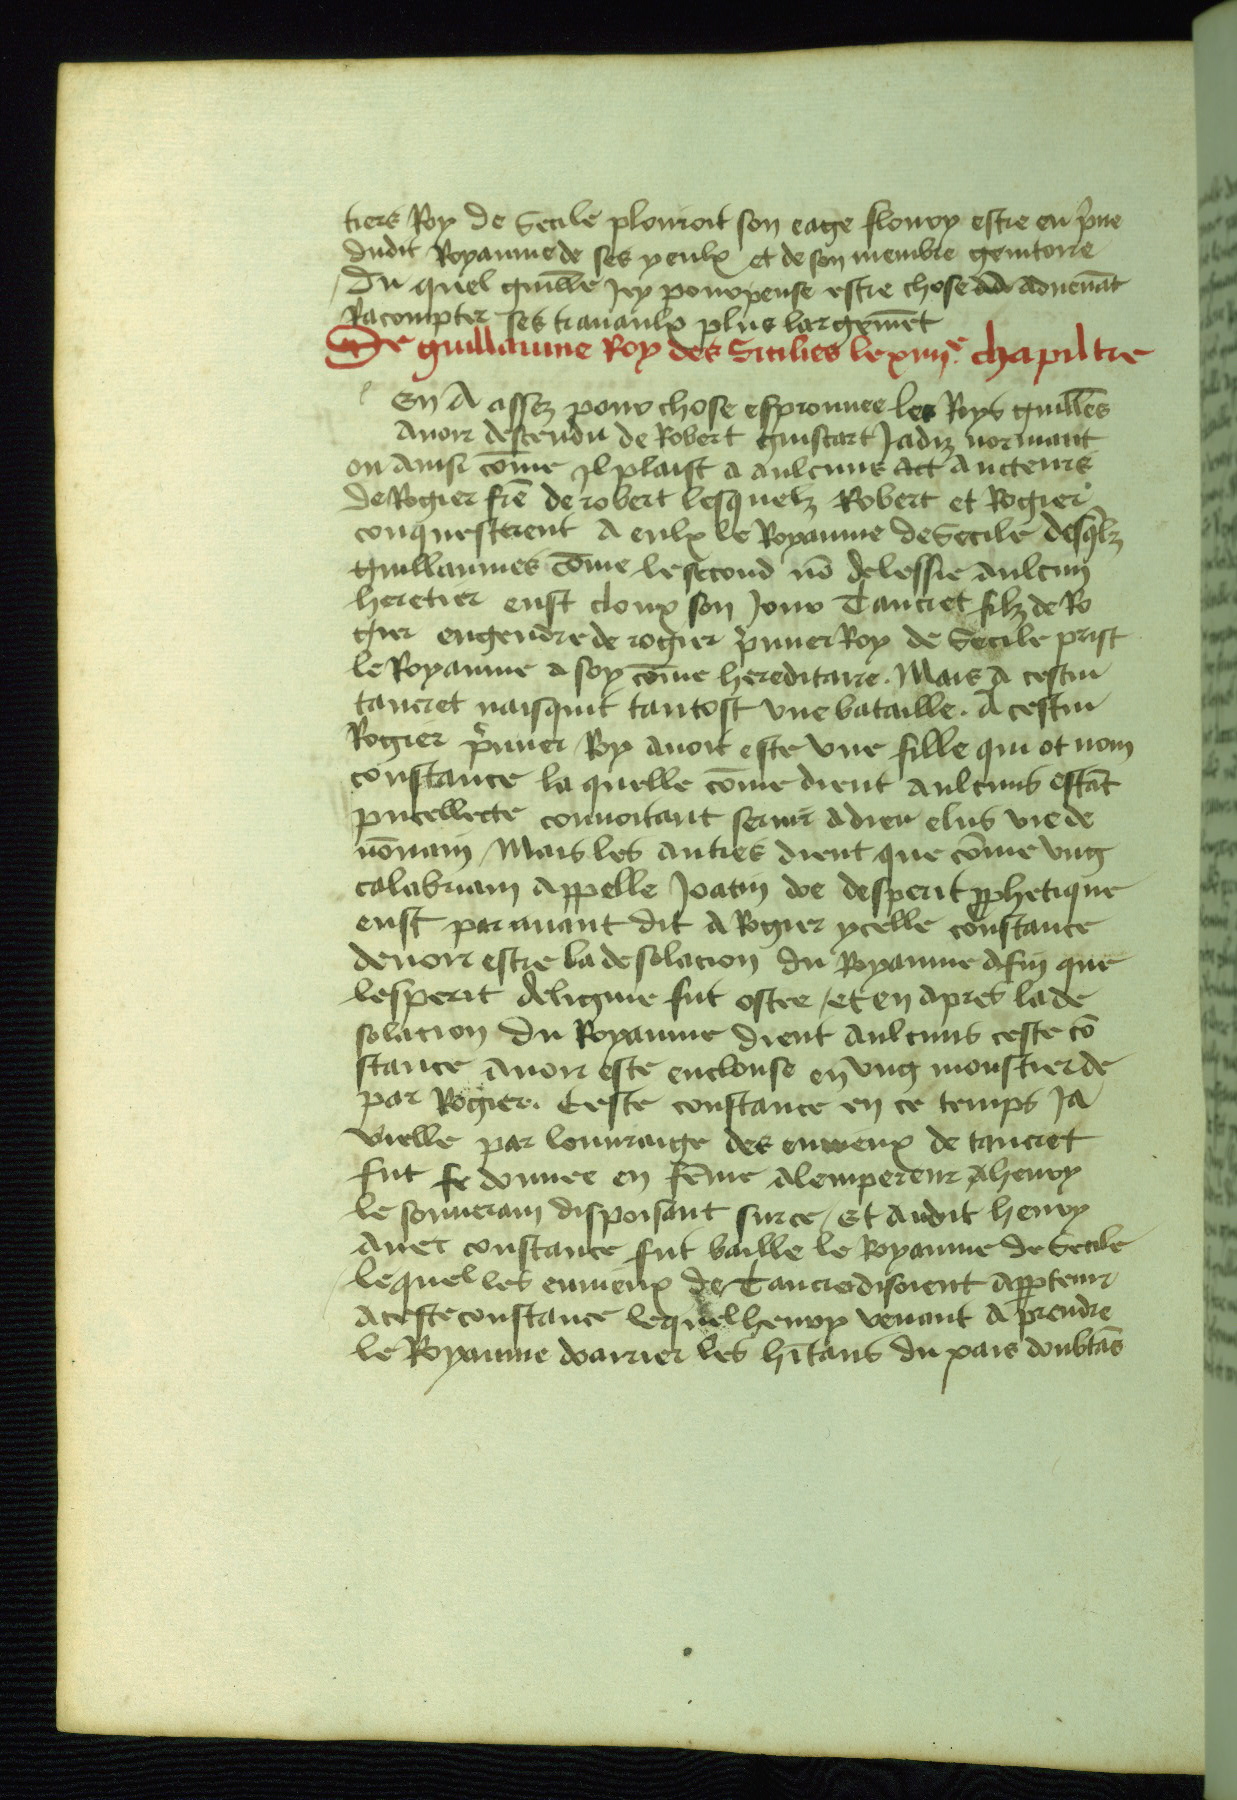 tiers Roy de Secile plouroit son eage floury estre en p̃ine
dudit Royaume de ses yeulx et de son membre genitoire
Du quel guill̃e Jey pourpense estre chose advenãt
Racompter ses travaulx plus largem̃et
De guillaume Roy des Sicilies le xiiij.e chapiltre
En A assez pour chose esprouvee les Roys guill̃es
Avoir descendu de Robert guiscart Jadiz normant
ou ainsi cõme Jl plaist a aulcuns Act Aucteurs
de Rogier frẽ de robert lesquelz Robert et Rogier
conquesterent A eulx le Royaume de Secile desq̃lz
guillaumes cõme le second nõ delessie Aulcun
heretier eust cloux son Jour Tancret filz de Ro
gier engendre de rogier p̃imier Roy de Secile prist
le Royaume a soy cõme hereditaire. Mais A cestui
tancret naisquit tantost vne bataille. A cestui
Rogier p̃imier Roy avoit este vne fille qui ot nom
constance la quelle cõme dient Aulcuns estãt
pucellecte convoitant servir a dieu elus vie de
nõnain / Mais les autres dient que cõme vng
calabriain Appelle Joatin doe desperit p̃phetique
eust par avant dit A Rogier ycelle constance
devoir estre la desolacion du Royaume Afin que
lesperit deligine fut ostee / et en apres la de
solacion du Royaume dient Aulcuns ceste cõ
stance Avoir este enclouse en vng monstier de
par Rogier. Ceste constance en ce temps Ja
vielle par louvraige des envieux de tancret
fut fe donnee en fẽme A lempereur A henry
le souverain disposant sur ce / Et Audit henry
Avec constance fut baille le Royaume de Secile
lequel les envieux de Tancre disoient App̃tenir
A ceste constance lequel henry venant A prendre
le Royaume doairier les hĩtans du pais doubtãs